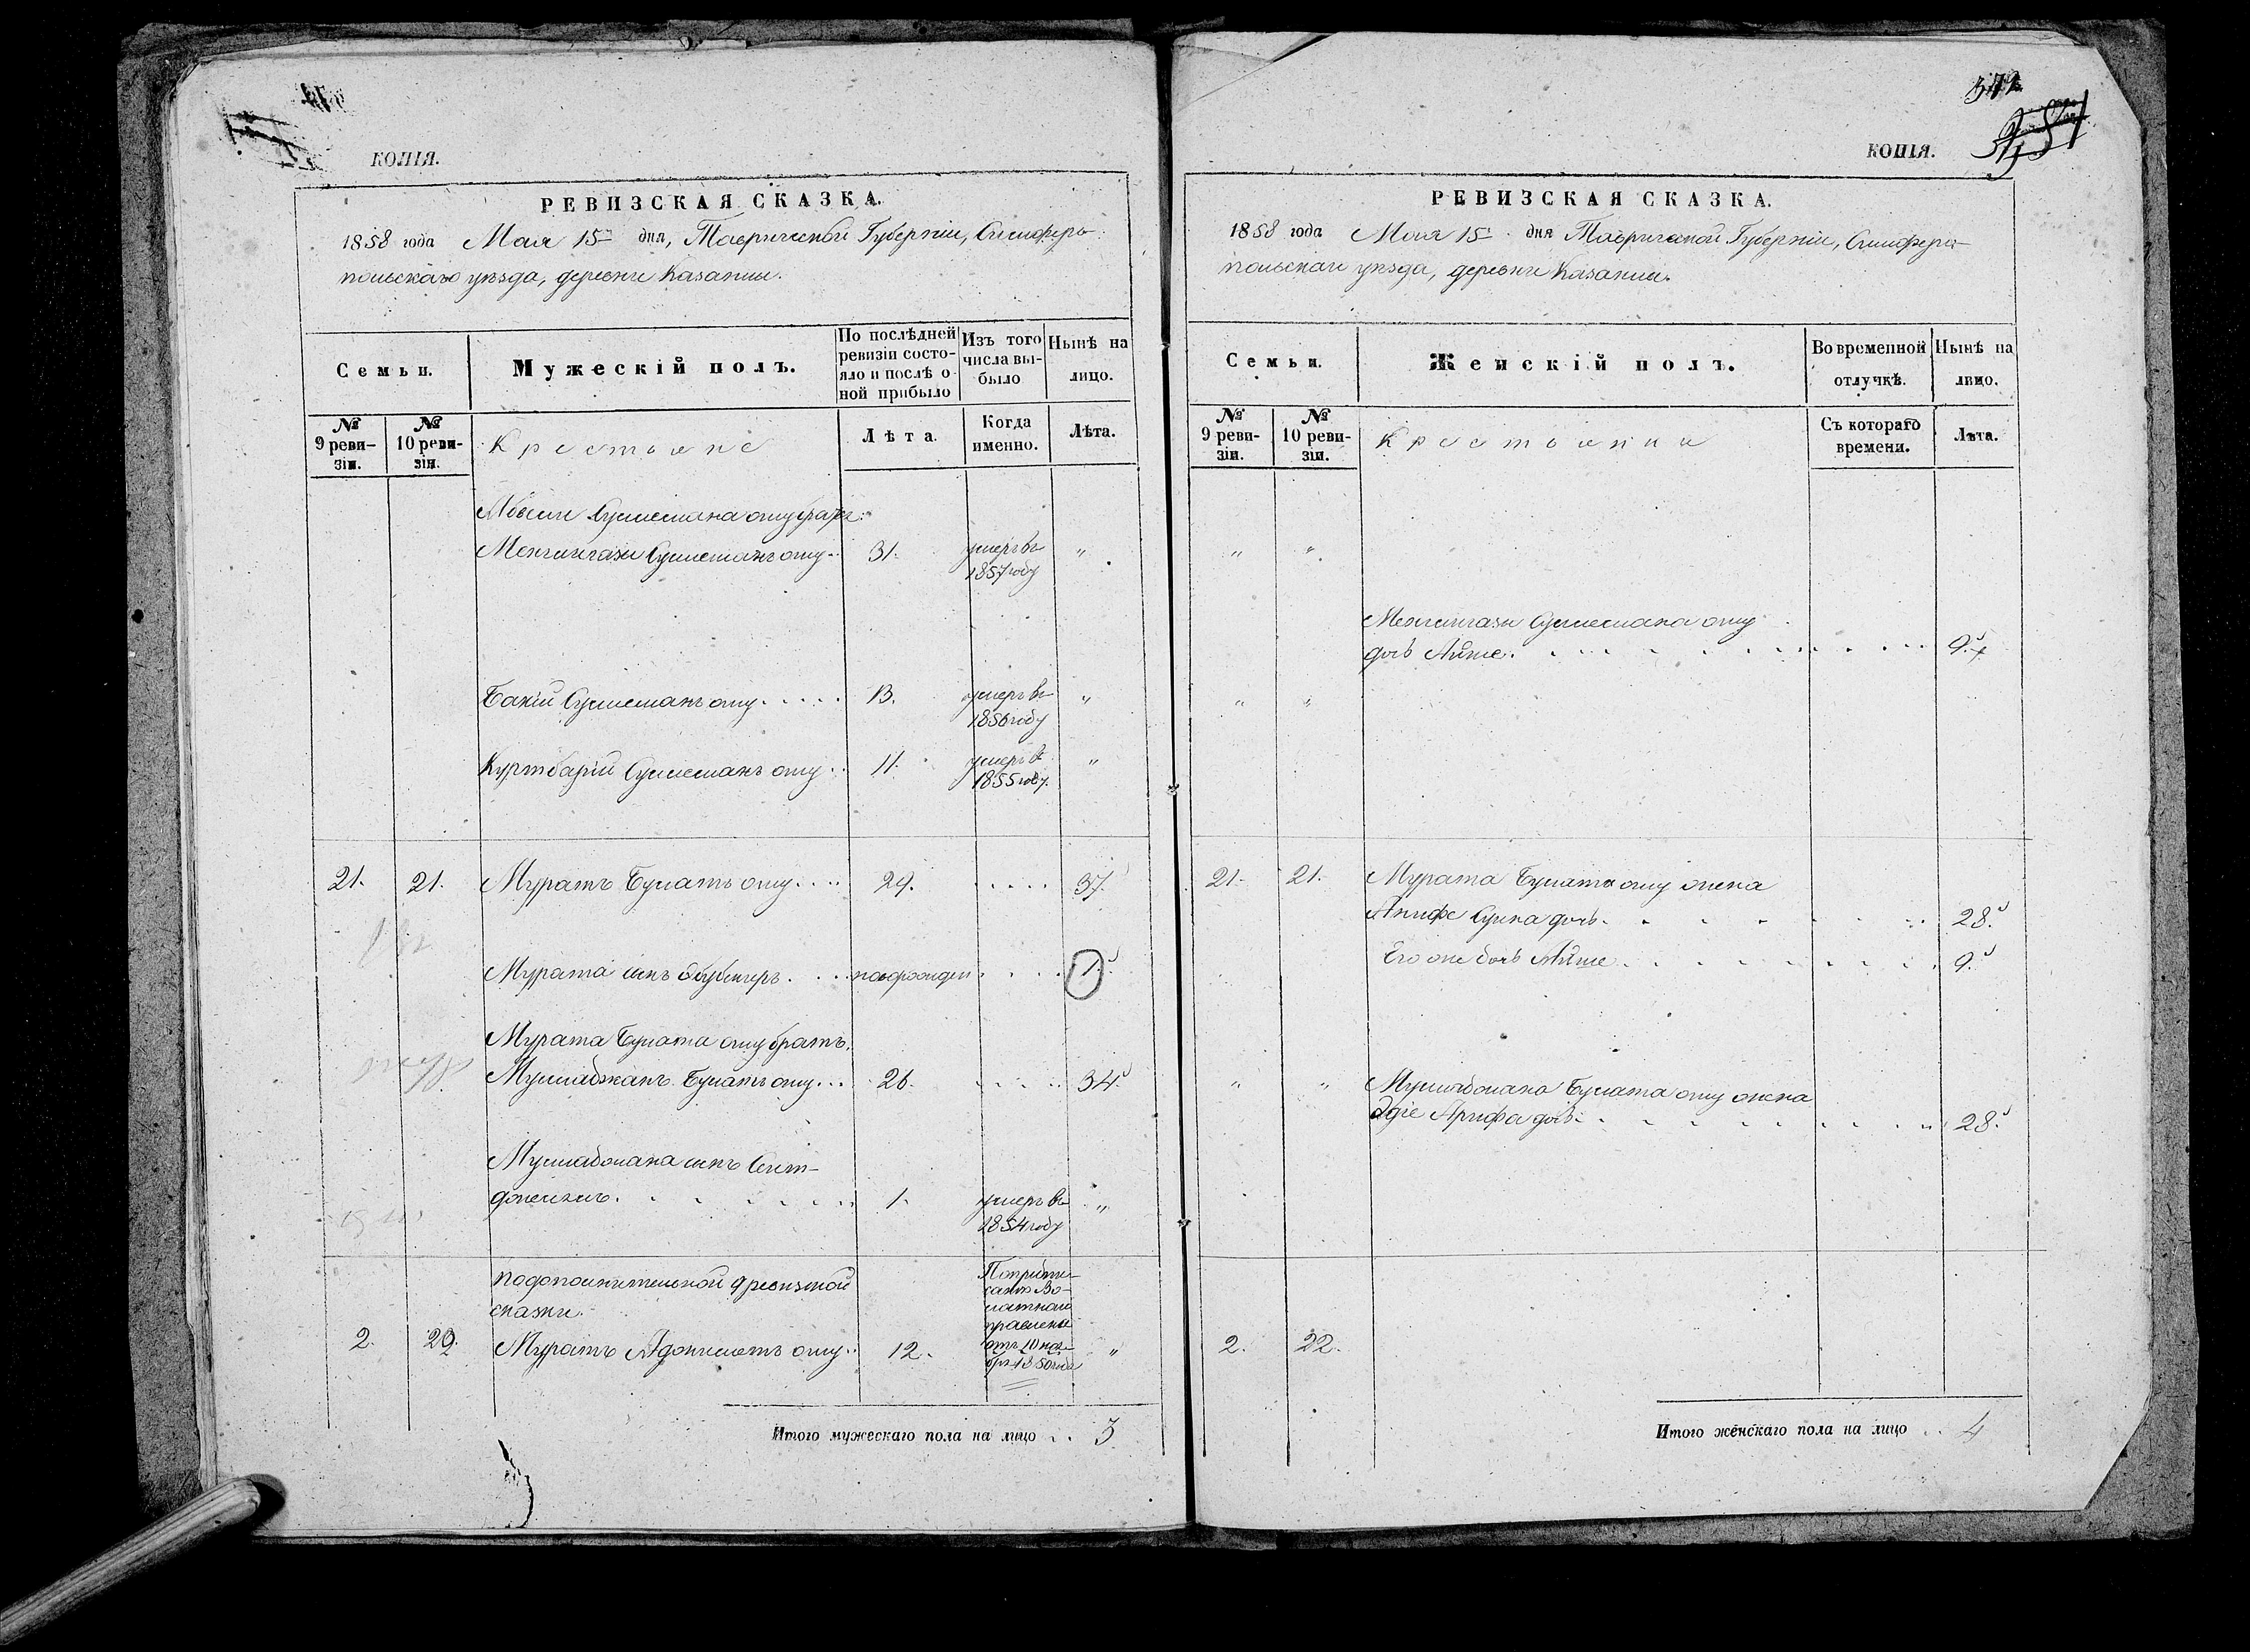 КОПІЯ.
РЕВИЗСКАЯ СКАЗКА.
1858 года Мая 15 дня, Таврической Губерніи, Симферо-
польскаго уѣзда, деревни Казанлы.
Семьи.
Мужескій полъ.
По послѣдней ревизіи состо-
яло и послѣ о-
ной прибыло
Изъ того числа вы-
было
Нынѣ на лицо.
№ 9 реви-
зіи.
№ 10 реви-
зіи.
Крестьяне
Лѣта.
Когда именно.
Лѣта.
Сулемана оглу братья:
Менгли​гази Сулеманъ оглу 31. умеръ въ 1857 году "
Бакій Сулеманъ оглу 13. умеръ въ 1856 году "
Куртбарій Сулеманъ оглу 11. умеръ въ 1855 году. "
21. 21. Муратъ Булатъ оглу 29. 37.
Мурата сынъ новорожден 1.
Мурата Булата оглу братъ.
Мусладжанъ Булатъ оглу 26. 34.
сынъ Сеит-
1. умеръ въ 1854 году "
По дополнительной 9 ревизской
сказки
2. 22. Муратъ оглу 12. "
Итого мужескаго пола на лицо 3
372
КОПІЯ.
РЕВИЗСКАЯ СКАЗКА.
1858 года Мая 15 дня Таврической Губерніи, Симферо-
польскаго уѣзда, деревни Казанлы.
Семьи.
Женскій полъ.
Во временной отлучкѣ.
Нынѣ на лицо.
№ 9 реви-
зіи.
№ 10 реви-
зіи.
Крестьянки
Съ котораго времени.
Лѣта.
" "
Менглигази Сулемана оглу
дочь Айше. 9.
" "
21. 21. Мурата Булата оглу жена
Анифе дочь 28.
Его же дочь Айше 9.
" " Булата оглу жена
Эдіе Арифа дочь 28.
2. 22.
Итого женскаго пола на лицо 4